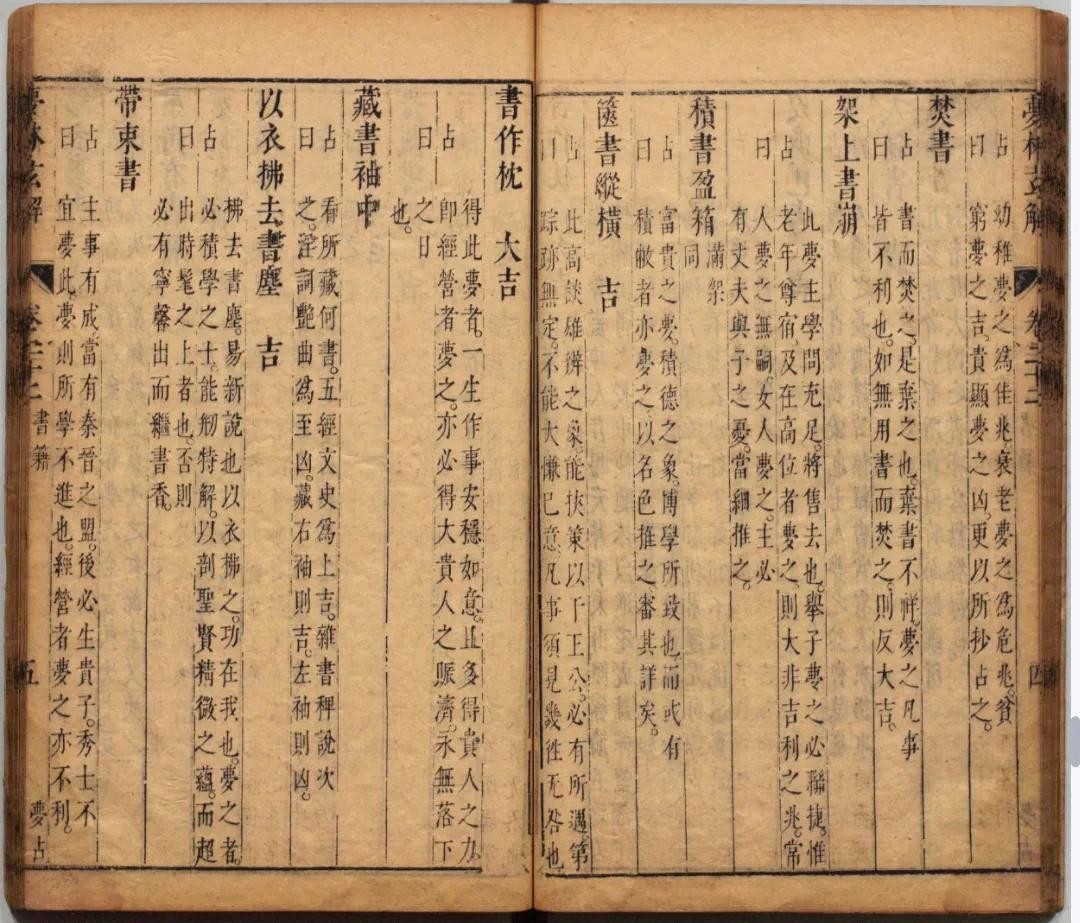 夢林玄解 卷二十二 四
占曰
幼稚夢之爲佳兆。衰老夢之爲危兆。貧
窮夢之吉。貴顯夢之凶。更以所抄占之。
焚書
占曰
書而焚之。是棄之也。棄書不祥。夢之凡事
皆不利也。如無用書而焚之。則反大吉。
架上書崩
占曰
此夢主學問充足。將售去也。舉子夢之必聯捷。惟
老年尊宿。及在高位者夢之。則大非吉利之兆。常
人夢之無嗣。女人夢之。主必
有丈夫與子之憂。當細推之。
積書盈箱 滿架同
占曰
富貴之夢。積德之象。博學所致也。而或有
積敝者亦夢之。以名色推之。審其詳矣。
篋書縱橫 吉
占曰
此高談雄辨之象。能挾策以干王公。必有所遇。第
踪跡無定。不能大慊己意。凡事須見幾徃无咎也
書作枕 大吉
占曰
得此夢者。一生作事安穩如意。且多得貴人之力。
卽經營者夢之。亦必得大貴人之賑濟。永無落下
之日
也。
藏書袖中
占曰
看所藏何書。五經文史爲上吉。雜書稗說次
之。淫詞艷曲爲至凶。藏右袖則吉。左袖則凶。
以衣拂去書塵 吉
占曰
拂去書塵。易新說也以衣拂之。功在我也。夢之者。
必積學之士。能剏特解。以剖聖賢精微之蘊。而超
出時髦之上者也。否則
必有寧馨出而繼書香。
帶束書
占曰
主事有成當有秦晉之盟。後必生貴子。秀士不
宜夢此。夢則所學不進也。經營者夢之亦不利。
夢林玄解 卷二十二 書籍 五 夢占